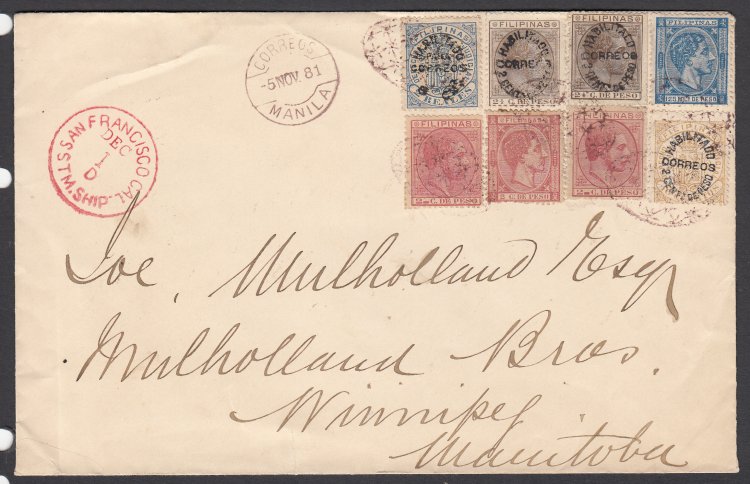 CORREOS
-5 NOV. 81
MANILA
SAN FRANCISCO CAL
DEC
1
D
STM. SHIP
FILIPINAS
HABILITADO
CORREOS
FILIPINAS
HABILITADO
CORREOS
2 CENTS
2 4/8 C. DE PESO
FILIPINAS
HABILITADO
CORREOS
2 4/8 C. DE PESO
FILIPINAS
125 MILS DE PESO
FILIPINAS
C. DE PESO
FILIPINAS
C. DE PESO
FILIPINAS
C. DE PESO
HABILITADO
CORREOS
2 CENTS DE PESO
Joe, Mulholland Esqr
Mulholland Bros.
Winnipeg
Manitoba